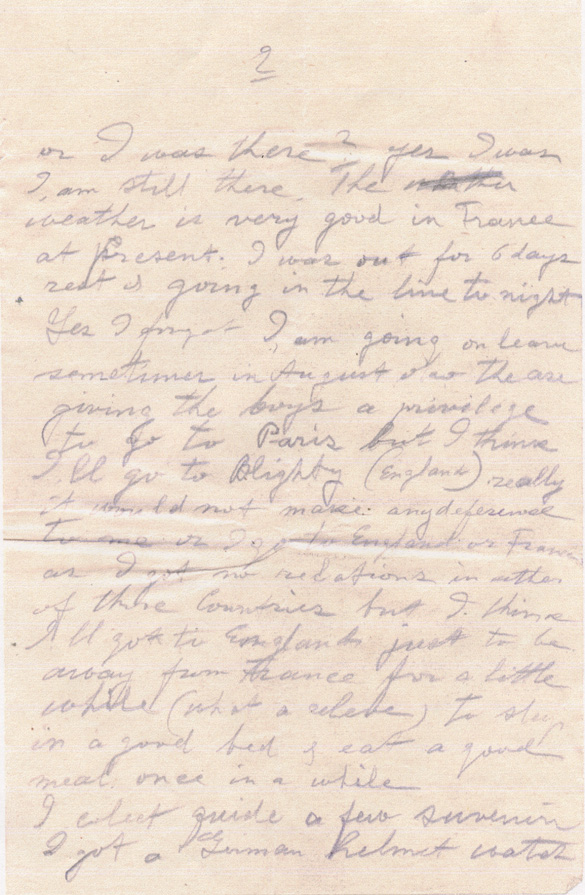 2
or I was there? yes I was
I, am still there. The
weather is very good in France
at Present. I was out for 6 days
rest is going in the line to night
Yes I forgot I, am going on leave
sometimer in August also the are
giving the boys a privilege
to go to Paris but I think
I'll go to Blighty (England) really
it would not make anydeference
to me or I go to England or France
as I got no relations in either
of thise Countries but I think
I'll got to England just to be
away from France for a little
while (what a releve) to sleep
in a good bed & eat a good
meal once in a while
I colect quide a few suvenirs
I got a German helmet watch